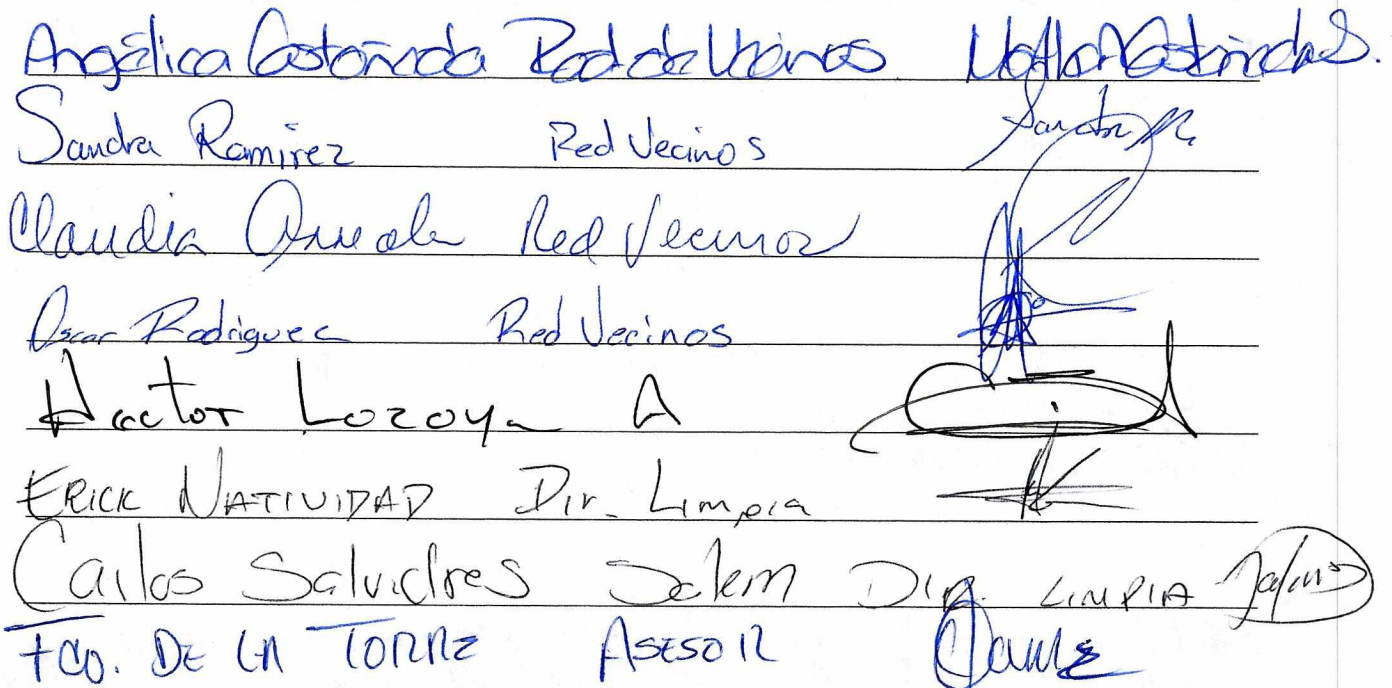 Angélica Castañeda Red de Vecinos
Sandra Ramirez Red Vecinos
Claudia Arreola Red Vecinos
Oscar Rodriguez Red Vecinos
Hector Lozoya A
ERICK NATIVIDAD Dir. Limpia
Carlos Salvidres Salem Dir. LIMPIA
Fco. DE LA TORRE ASESOR